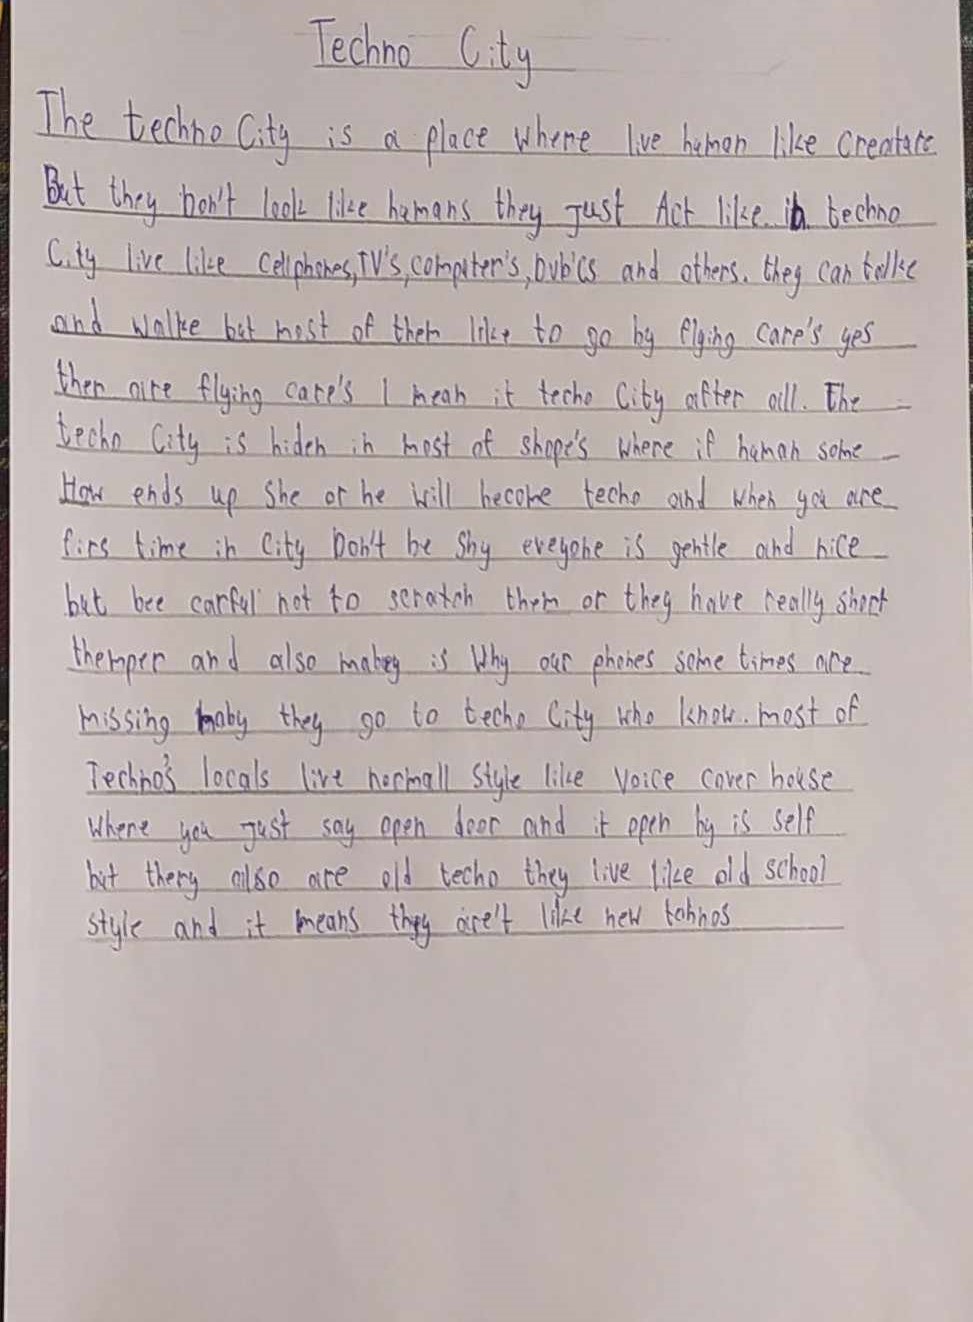 Techno City
The techno City is a place where live human like Creature
But they Don't look like humans they just Act like in techno
City live like Cellphones,TV's,computer's, and others. they can talke
and walke but most of them like to go by flying care's yes
ther are flying care's I mean it techo City after all. The
techo City is hiden in most of shope's where if human some
How ends up she or he will become techo and when you are
firs time in City Don't be Shy eveyone is gentle and nice
but bee carful not to scratch them or they have really short
themper and also mabey is Why our phones some times are
missing maby they go to techo City who know. most of
Techno's locals live normall style like voice cover house
where you just say open door and it open by is self
but thery also are old techo they live like old school
style and it means they are't like new tohnos